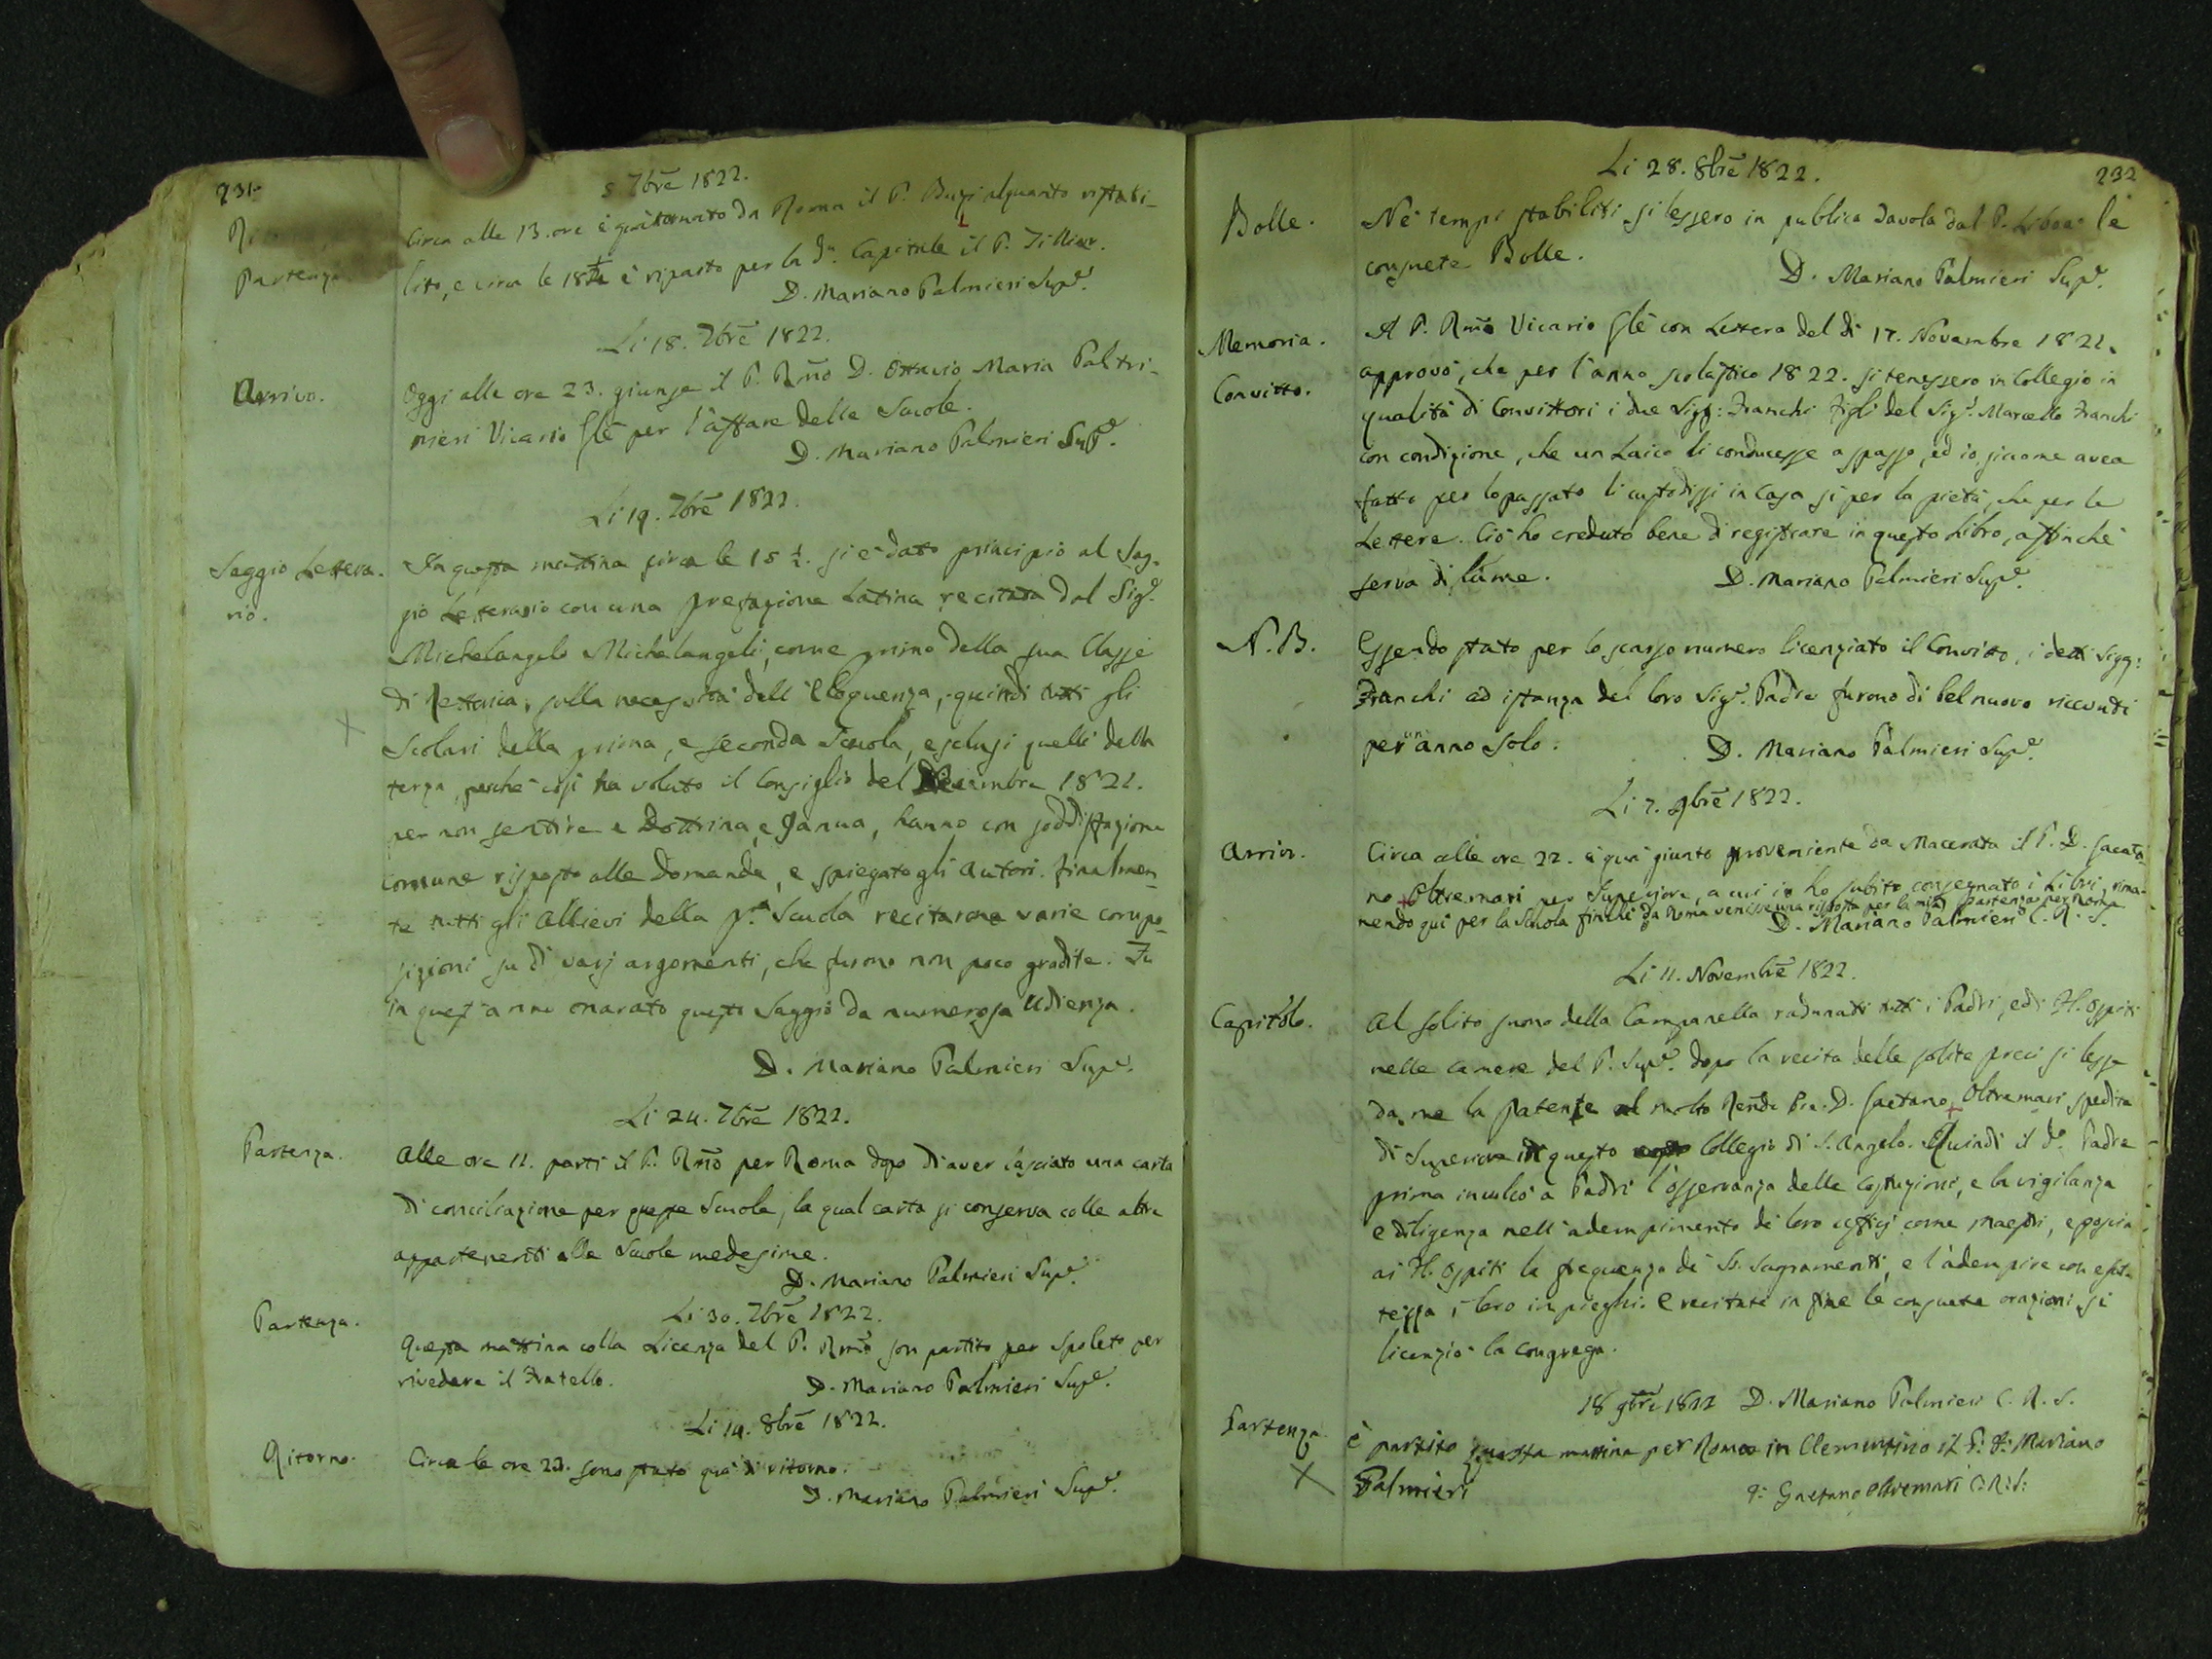 231.
5 7bre 1822.
Partenza.
Circa alle 13. ore è qui tornato da Roma il P. Buzi alquanto ristabi-
lito, e circa le 18 è riparto per la da. Capitale il P.
D. Mariano Palmieri Supe.
Li 18. 7bre 1822.
Arrivo.
Oggi alle ore 23. giunse il P. Rmo D. Ottavio Maria Paltri-
nieri Vicario Gle per l'affare delle Scuole.
D. Mariano Palmieri Supe.
Li 19. 7bre 1822.
Saggio Lettera-
rio.
In questa mattina circa le 15 ½. si è dato principio al Sag-
gio Letterario con una prefazione Latina recitata dal Sigr.
Michelangelo Michelangeli, come primo della sua Classe
di Rettorica, sulla necessità dell'Eloquenza, quindi tutti gli
Scolari della prima, e seconda Scuola, esclusi quelli della
terza, perchè così ha voluto il Consiglio del Decembre 1821.
per non sentire e Dottrina, e Janua, hanno con soddisfazione
comune risposto alle Domande, e spiegato gli Autori. Finalmen-
te tutti gli Allievi della pa. Scuola recitarono varie compo-
sizioni su di varj argomenti, che furono non poco gradite. Fu
in quest'anno onorato questo Saggio da numerosa Udienza.
D. Mariano Palmieri Supe.
Li 24. 7bre 1822.
Partenza.
Alle ore 11. partì il P. Rmo per Roma dopo di aver lasciato una carta
di conciliazione per queste Scuole, la qual carta si conserva colle altre
appartenenti alle Scuole medesime.
D. Mariano Palmieri Supe.
Li 30. 7bre 1822.
Partenza.
Questa mattina colla Licenza del P. Rmo son partito per Spoleto per
rivedere il Fratello.
D. Mariano Palmieri Supe.
Li 19. 8bre 1822.
Ritorno.
Circa le ore 23. sono stato quà di ritorno.
D. Mariano Palmieri Supe.
232
Li 28. 8bre 1822.
Bolle.
Ne' tempi stabiliti si lessero in publica Tavola dal P. le
consuete Bolle.
D. Mariano Palmieri Supe.
Memoria.
Convitto.
Il P. Rmo Vicario Gle con Lettera del dì 17. Novembre 1821.
approvò, che per l'anno scolastico 1822. si tenessero in Collegio in
qualità di Convittori i due Sigg: Franchi figli del Sigr. Marcello Franchi
con condizione, che un Laico li conducesse a spasso, ed io siccome avea
fatto per lo passato li custodissi in Casa sì per la pietà, che per le
Lettere. Ciò ho creduto bene di registrare in questo Libro, affinchè
serva di lume.
D. Mariano Palmieri Supe.
N. B.
Essendo stato per lo scarso numero licenziato il Convitto, i detti Sigg:
Franchi ad istanza del loro Sigr. Padre furono di bel nuovo ricevuti
per un anno solo.
D. Mariano Palmieri Supe.
Li 7. 9bre 1822.
Arrivo.
Circa alle ore 22. è quì giunto proveniente da Macerata il P. D. Gaeta-
no Oltremari per Superiore, a cui io ho subito consegnato i Libri, rima-
nendo qui per la Scuola finchè da Roma venisse una risposta per la mia partenza per Roma
D. Mariano Palmieri C. R. S.
Li 11. Novembre 1822.
Capitolo.
Al solito suono della Campanella radunati tutti i Padri, ed i H. Ospiti
nelle camere del P. Supe. dopo la recita delle solite preci si lesse
da me la Patente al molto Rendo Pre. D. Gaetano Oltremari spedita
di Superiore in questo Collegio di S. Angelo. Quindi il do. Padre
prima inculcò a Padri l'osservanza delle Costituzioni, e la vigilanza
e diligenza nell'adempimento de' loro uffizj come Maestri, e poscia
ai H. Ospiti la frequenza de' SS. Sagramenti, e l'adempire con esat-
tezza i loro impieghi. E recitate in fine le consuete orazioni si
licenziò la Congrega.
D. Mariano Palmieri C. R. S.
18 9bre 1822
Partenza
È partito questa mattina per Roma in Clementino il P. D: Mariano
Palmieri
D: Gaetano Oltremari C: R: S: